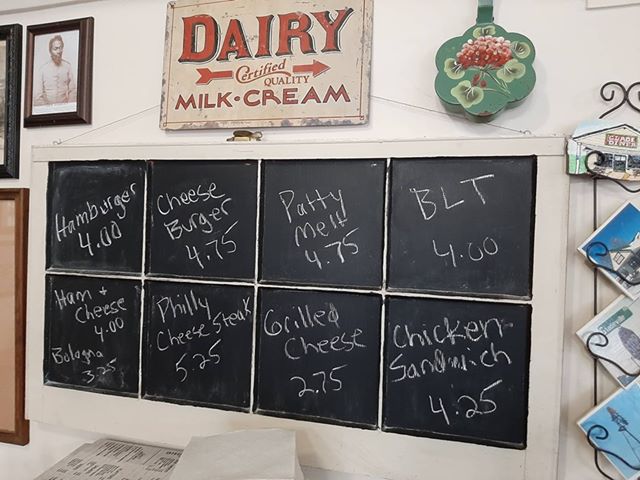 DAIRY
Certified
QUALITY
MILK•CREAM
Hamburger
4.00
Cheese
Burger
4.75
Patty
Melt
4.75
BLT
4.00
Ham +
Cheese
4.00
Bologna
3.25
Philly
Cheese Steak
5.25
Grilled
Cheese
2.75
Chicken
Sandwich
4.25